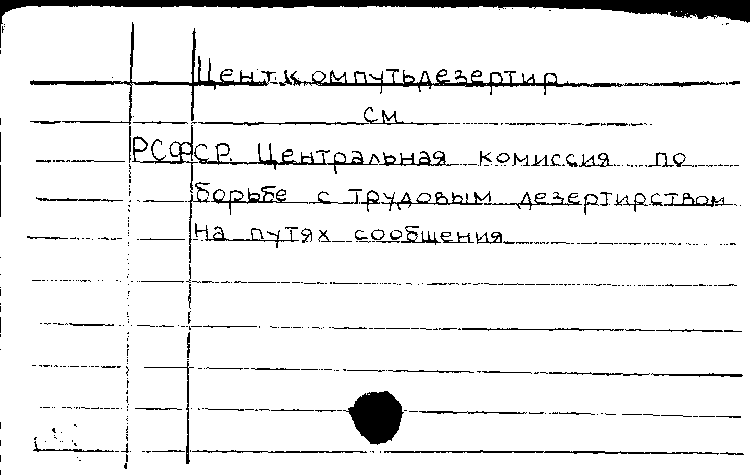 Центкомпутьдезертир
см
РСФСР. Центральная комиссия по
борьбе с трудовым дезертирством
на путях сообщения